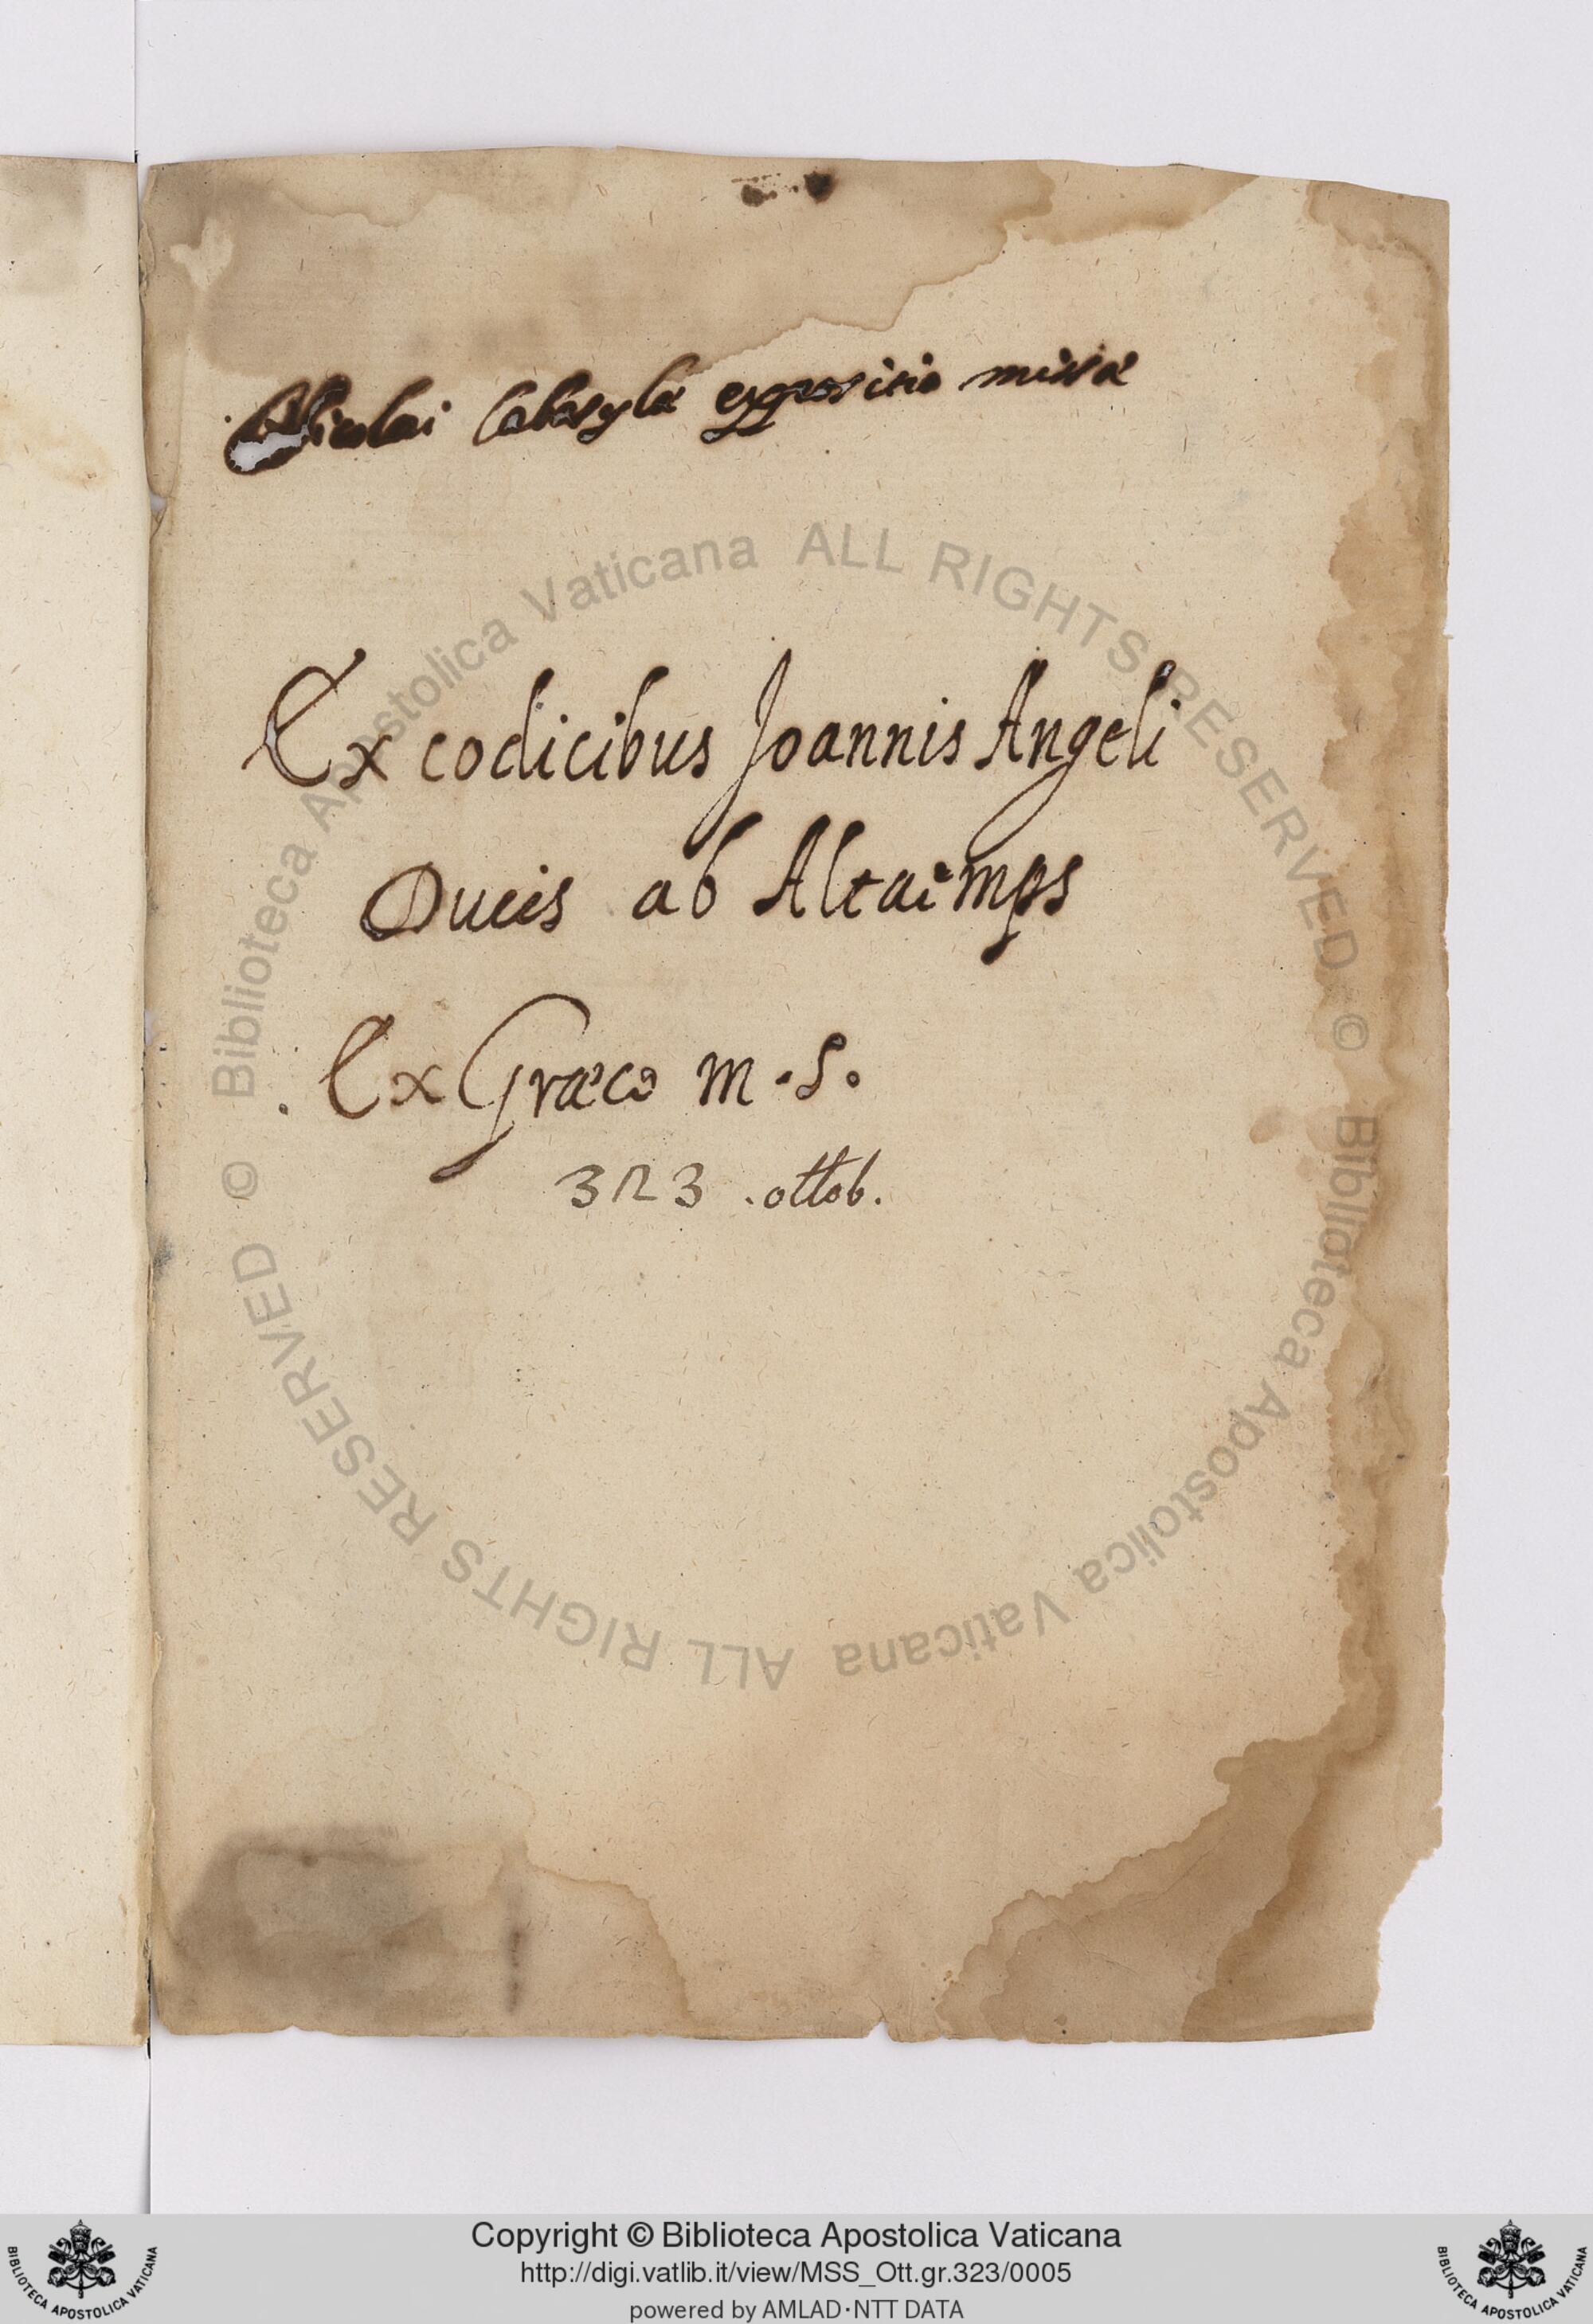 Nicolai Cabasylæ expositio missæ
Ex codicibus Joannis Angeli
Ducis ab Altaemps
Ex Græco m.s.
323 .ottob.
© Biblioteca Apostolica Vaticana ALL RIGHTS RESERVED
© Biblioteca Apostolica Vaticana ALL RIGHTS RESERVED
Copyright © Biblioteca Apostolica Vaticana
http://digi.vatlib.it/view/MSS_Ott.gr.323/0005
powered by AMLAD·NTT DATA
BIBLIOTECA APOSTOLICA VATICANA
BIBLIOTECA APOSTOLICA VATICANA